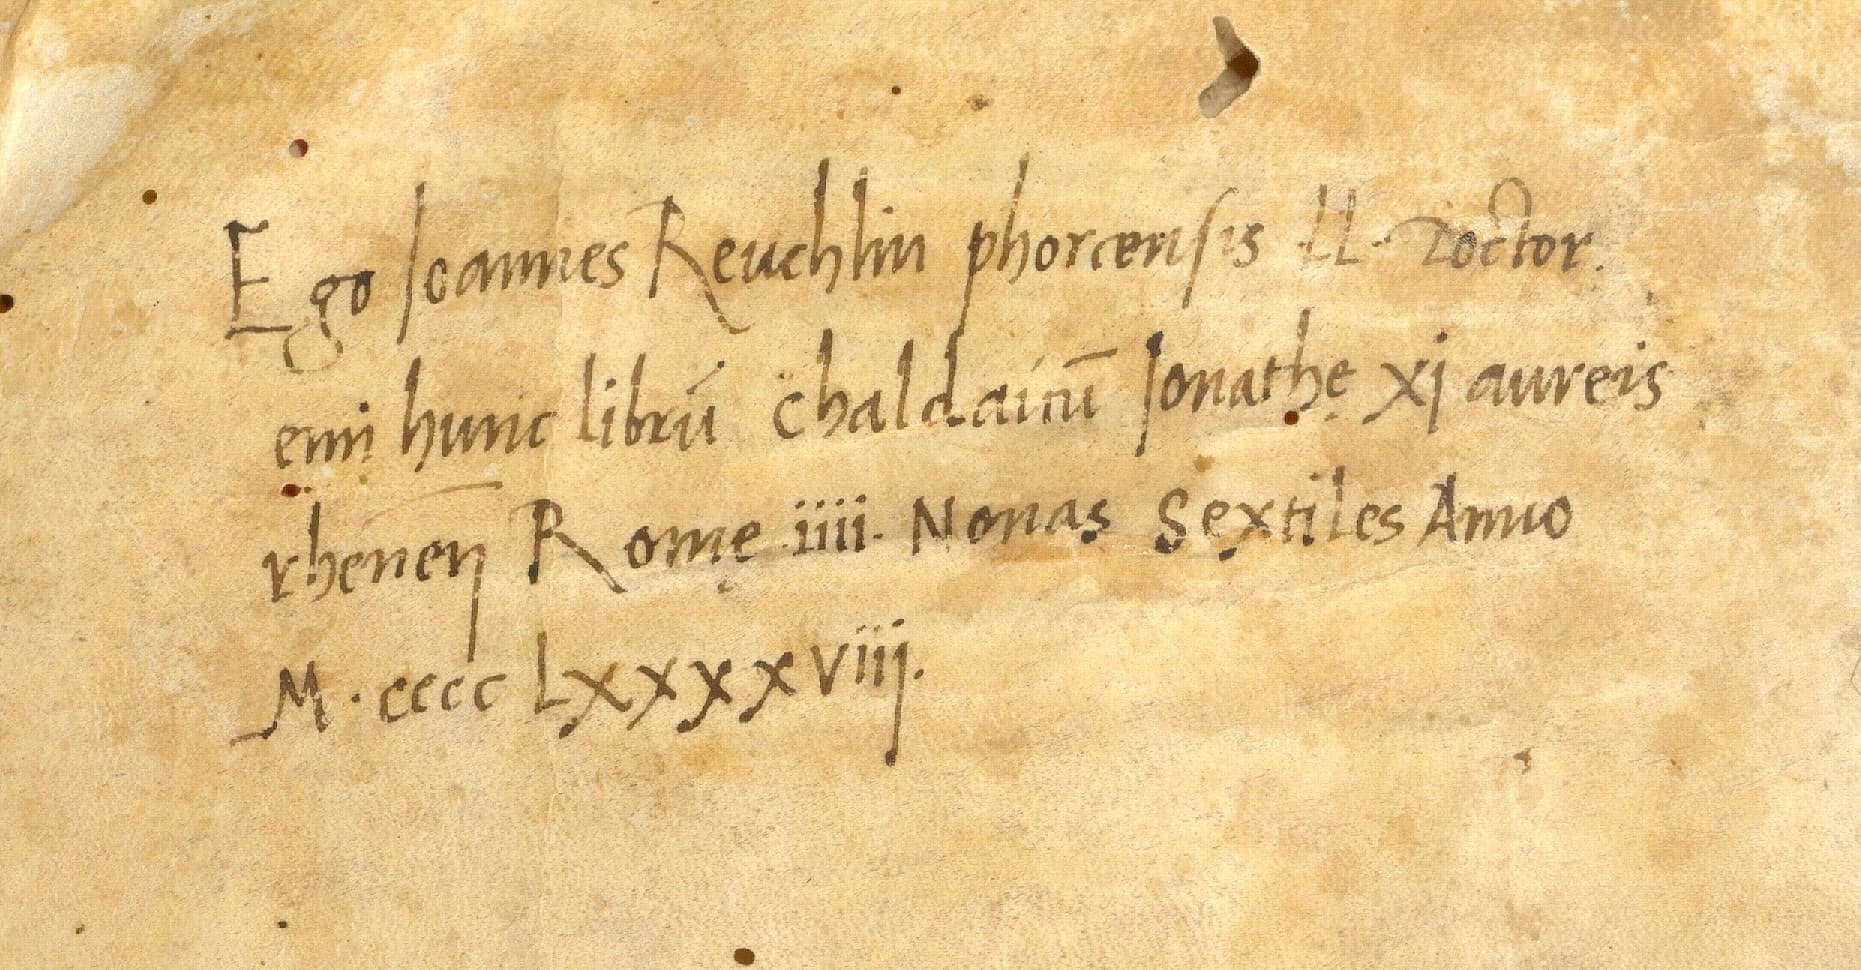 Ego Ioannes Reuchlin phorcensis LL. Doctor.
emi hunc librū chaldaicū Ionathę xj aureis
rheneñ Romę .iiii. Nonas Sextiles Anno
M . cccc Lxxxxviij.